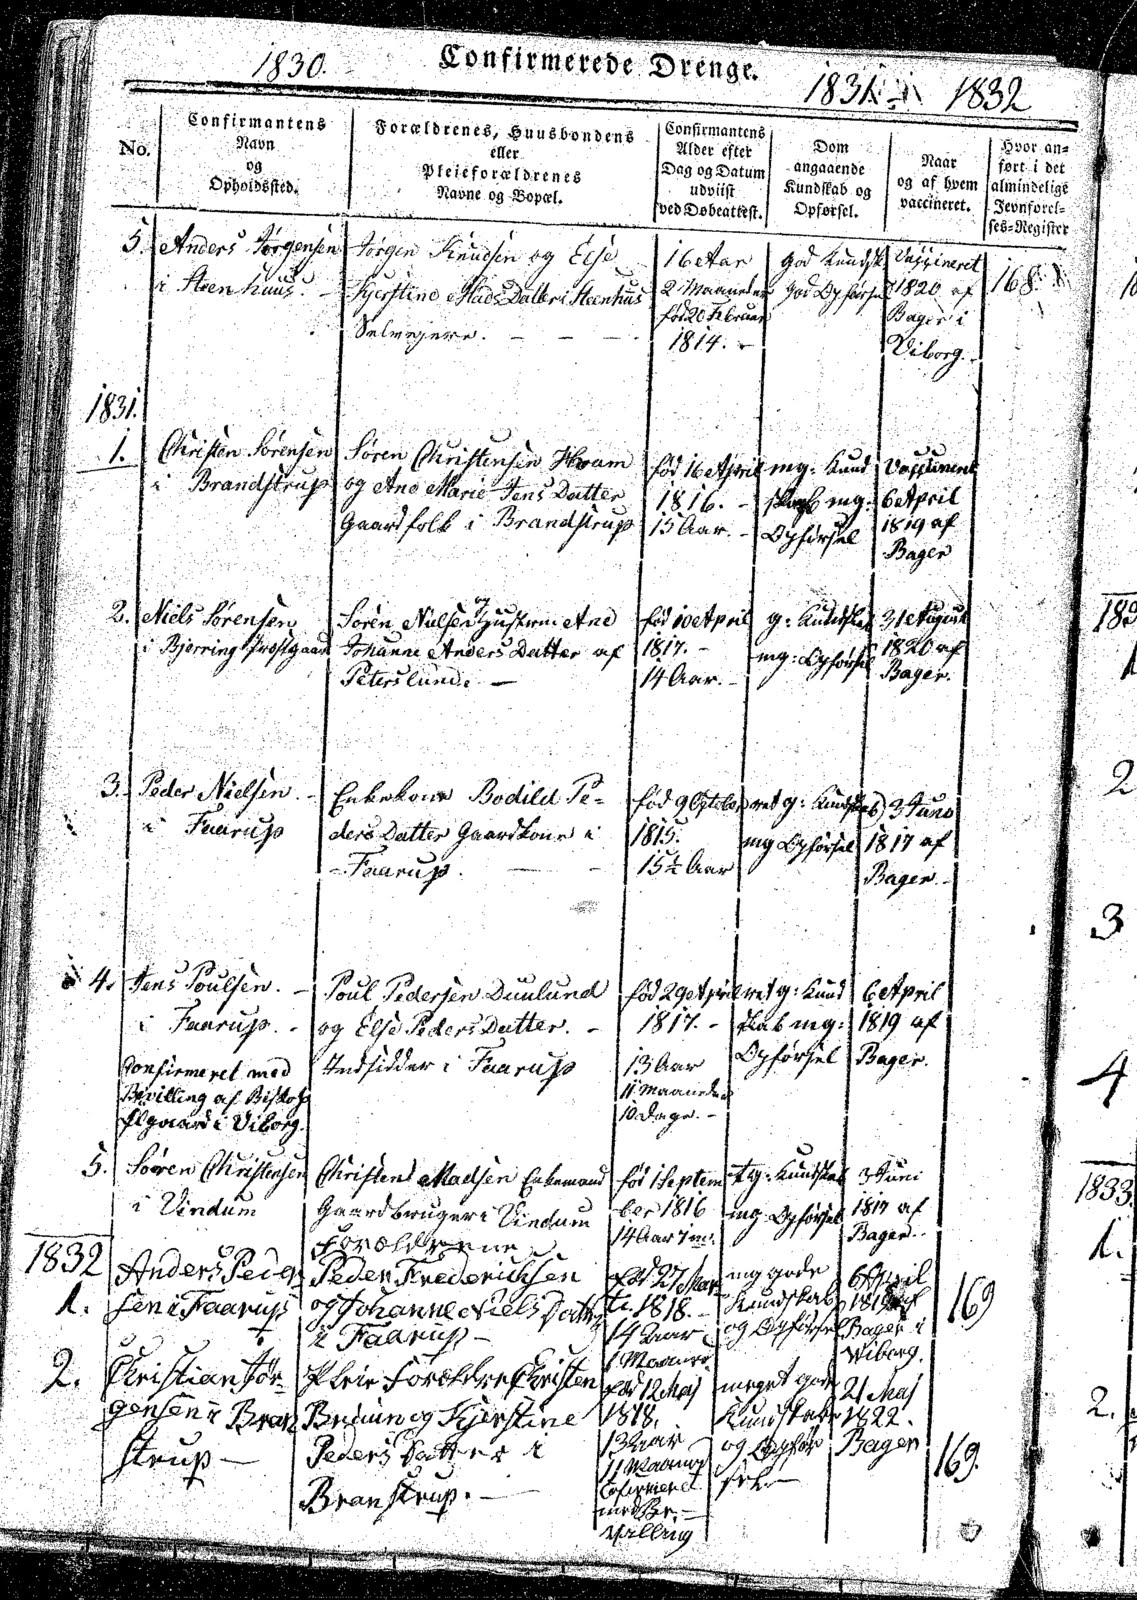 1830. Confirmerede Drenge. 1831. 1832
No.
Confirmantens
Navn
og
Opholdssted.
Forældrenes, Huusbondens
eller
Pleieforældrenes
Navne og Bopæl.
Confirmantens
Alder efter
Dag og Datum
udviist
ved Døbeattest.
Dom
angaaende
Kundskab og
Opførsel.
Naar
og af hvem
vaccineret.
Hvor an=
ført i det
almindelige
Jevnførel=
ses=Register
5. Anders Jørgensen
i Steenhuus.
Jørgen Knudsen og Else
Kjerstine Mads Datter i Steenhus
Selveyere.
16 Aar
2 Maaneder
fød 20 Februar
1814.
god Kundsk
god Opførsel
Vaccineret
1820 af
Bager i
Viborg.
168.
1831.
1. Christen Sørensen
i Brandstrup
Søren Christensen
og Ane Marie Jens Datter
Gaardfolk i Brandstrup
fød 16 April
1816.
15 Aar.
mg: Kund
skab mg:
Opførsel
Vaccineret
6 April
1819 af
Bager
2. Niels Sørensen
i Bjerring Præstgaard
Søren Nielsen og Hustrue Ane
Johanne Anders Datter af
Peterslund.
fød 10 April
1817.
14 Aar.
g: Kundskab
mg: Opførsel
31 August
1820 af
Bager.
3. Peder Nielsen
i Faarup
Enkekone Bodild Pe=
ders Datter Gaardkone i
Faarup.
fød 9 October
1815.
15½ Aar
ret g: Kundskab
mg Opførsel
3 Juno
1817 af
Bager.
4. Jens Poulsen.
i Faarup.
Confirmeret med
Bevilling af Biskop
i Viborg.
Poul Pedersen Duulund
og Else Peders Datter.
Indsidder i Faarup
fød 29 April
1817.
13 Aar
11 Maaneder
10 Dage.
ret g: Kund
skab mg:
Opførsel
6 April
1819 af
Bager.
5. Søren Christensen
i Vindum
Christen Madsen Enkemand
Gaardbruger i Vindum
Forældrene
fød 1 Septem
ber 1816
14 Aar 7 m:
tg: Kundskab
mg Opførsel
3 Juni
1817 af
Bager.
1832
1. Anders Peder
sen i Faarup
Peder Frederichsen
og Johanne Niels Datter
i Faarup
fød 27 Mar
ti 1818.
14 Aar
1 Maaned.
mg gode
Kundskab
og Opførsel
6 April
1819 af
Bager i
Wiborg.
169
2. Christian Jør=
gensen i Bran
strup
Pleie Forældre Christen
Bruun og Kjerstine
Peders Datter i
Branstrup.
fød 12 Maj
1818.
13 Aar
11 Maaned
Confirmeret
med Be=
villing
meget gode
Kundskab
og Opfør
sel
21 Maj
1822.
Bager
169.
2
3
4
1833.
1.
2.